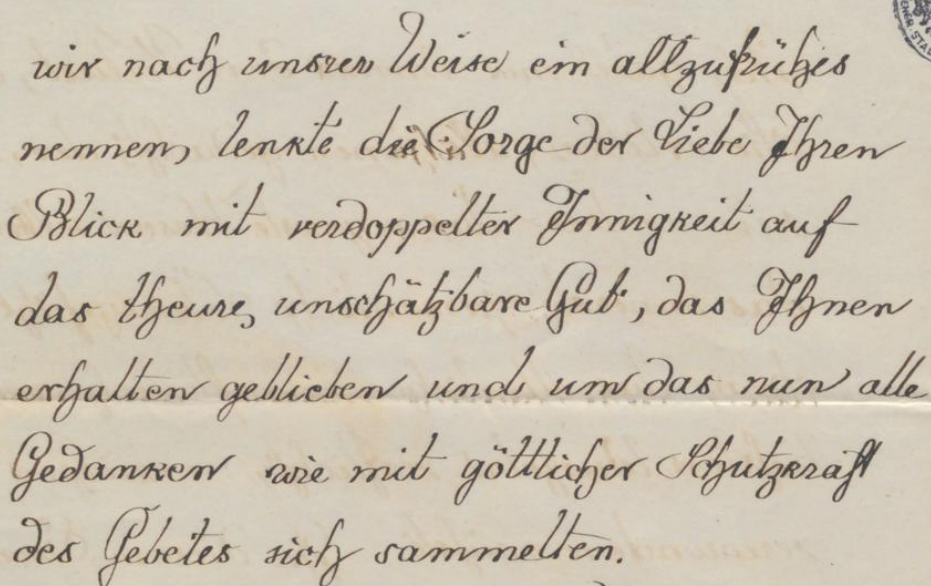 wir nach unsrer Weise ein allzufrühes
nennen, lenkte die Sorge der Liebe Ihren
Blick mit verdoppelter Innigkeit auf
das theure, unschätzbare Gut, das Ihnen
erhalten geblieben und um das nun alle
Gedanken wie mit göttlicher Schutzkraft
des Gebetes sich sammelten.